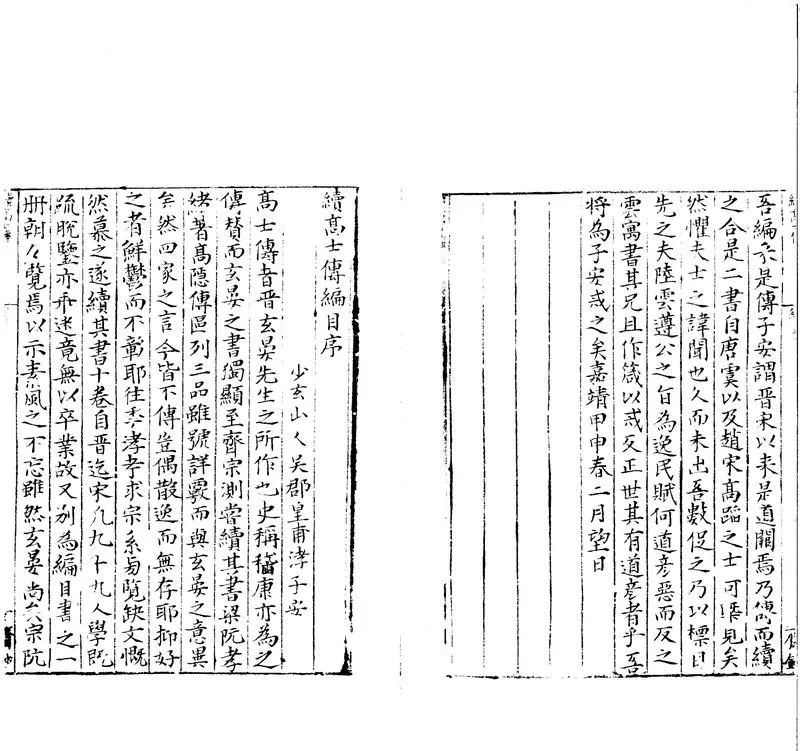 吾編矣是傳子安謂晉宋以来是道闕焉乃傳而續
之合是二書自唐虞以及趙宋高蹈之士可槩見矣
然懼夫士之諱聞也久而未出吾數促之乃以標目
先之夫陸雲遵公之旨為逸民賦何道彥惡而反之
雲寓書其兄且作箴以戒反正世其有道彥者乎吾
将為子安戒之矣嘉靖甲申春二月望日
續高士傳編目序
少玄山人吳郡皇甫涍子安
高士傳者晋玄晏先生之所作也史稱嵇康亦為之
傳賛而玄晏之書獨顯至齊宗測嘗續其書梁阮孝
緒著高隠傳區列三品雖號詳覈而與玄晏之意異
矣然四家之言今皆不傳豈偶散逸而無存耶抑好
之者鮮鬱而不彰耶往季涍幸求宗系与覽缺文慨
然慕之遂續其書十卷自晋迄宋凡九十九人學既
疏脫鑒亦乖迷竟無以卒業故又别為編目書之一
冊朝々覽焉以示素風之不忘雖然玄晏尚矣宗阮